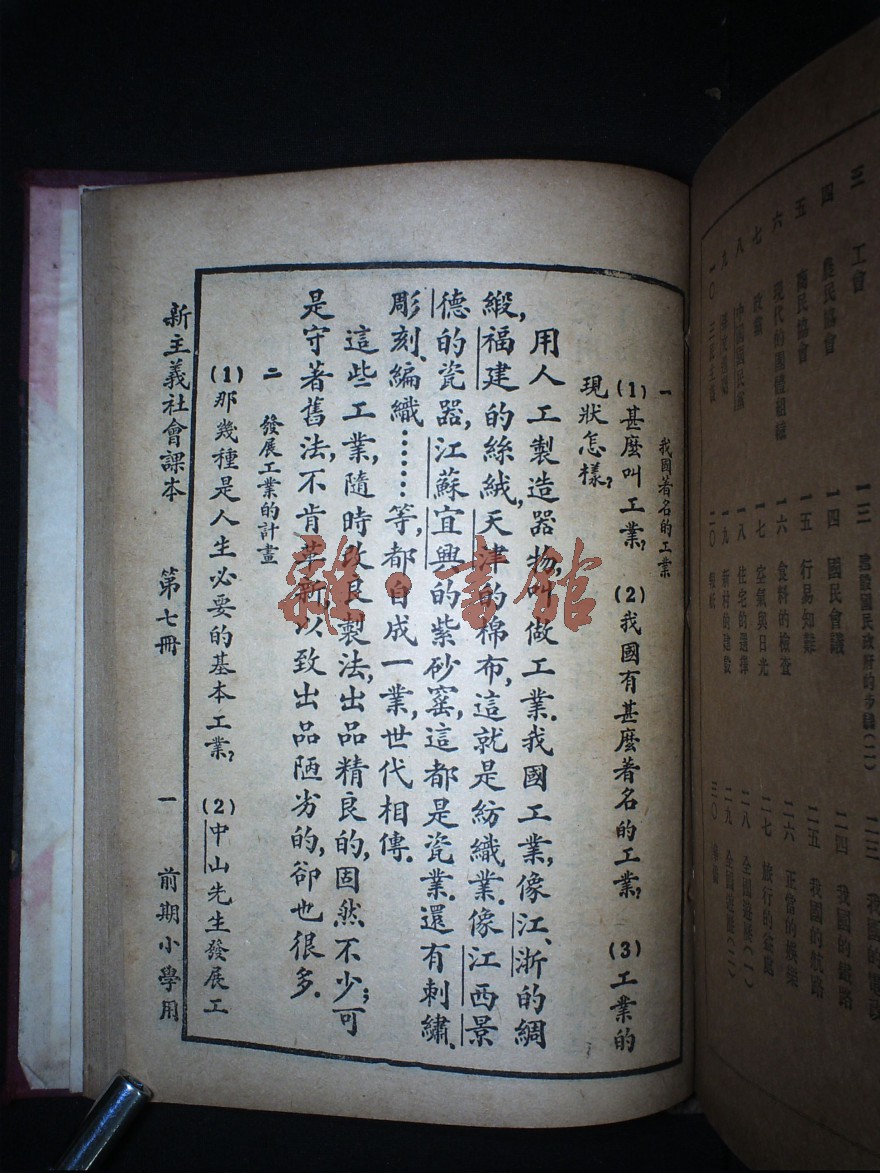 三 工會 一三 建設國民政府的步驟(二) 二三 我國的
四 農民協會 一四 國民會議 二四 我國的鐵路
五 商民協會 一五 行易知難 二五 我國的航路
六 現代的團體組織 一六 食料的檢查 二六 正當的娛樂
七 政黨 一七 空氣與日光 二七 旅行的益處
八 中國國民黨 一八 住宅的選擇 二八 全國遊歷(一)
九 一九 新村的建設 二九 全國遊歷(二)
一〇 三民主義 二〇 三〇
一 我國著名的工業
(1)甚麼叫工業? (2)我國有甚麼著名的工業? (3)工業的
現狀怎樣?
用人工製造器物,叫做工業.我國工業,像江、浙的綢
緞,福建的絲絨,天津的棉布,這就是紡織業.像江西景
德的瓷器,江蘇宜興的紫砂窰,這都是瓷業.還有刺繡、
彫刻、編織………等,都自成一業,世代相傳.
這些工業,隨時改良製法,出品精良的,固然不少;可
是守著舊法,不肯革新,以致出品陋劣的,卻也很多.
二 發展工業的計畫
(1)那幾種是人生必要的基本工業? (2)中山先生發展工
新主義社會課本 第七冊 一 前期小學用
雜·書館